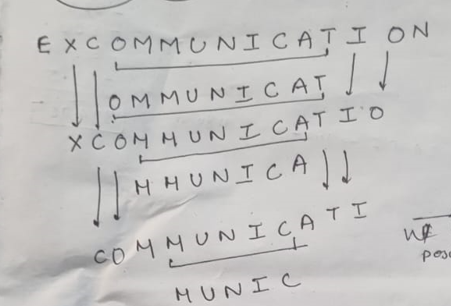 EXCOMMUNICATION
OMMUNICAT
XCOMMUNICATIO
MMUNICA
COMMUNICATI
MUNIC